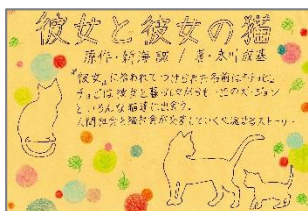 彼女と彼女の猫
原作・新海誠 / 著・永川成基
"彼女"に拾われてつけられた名前はチョビ。
チョビは彼女と暮らしながらも、このダンジョン
といろんな猫達に出会う。
人間社会と猫社会が交差していく心温まるストーリー